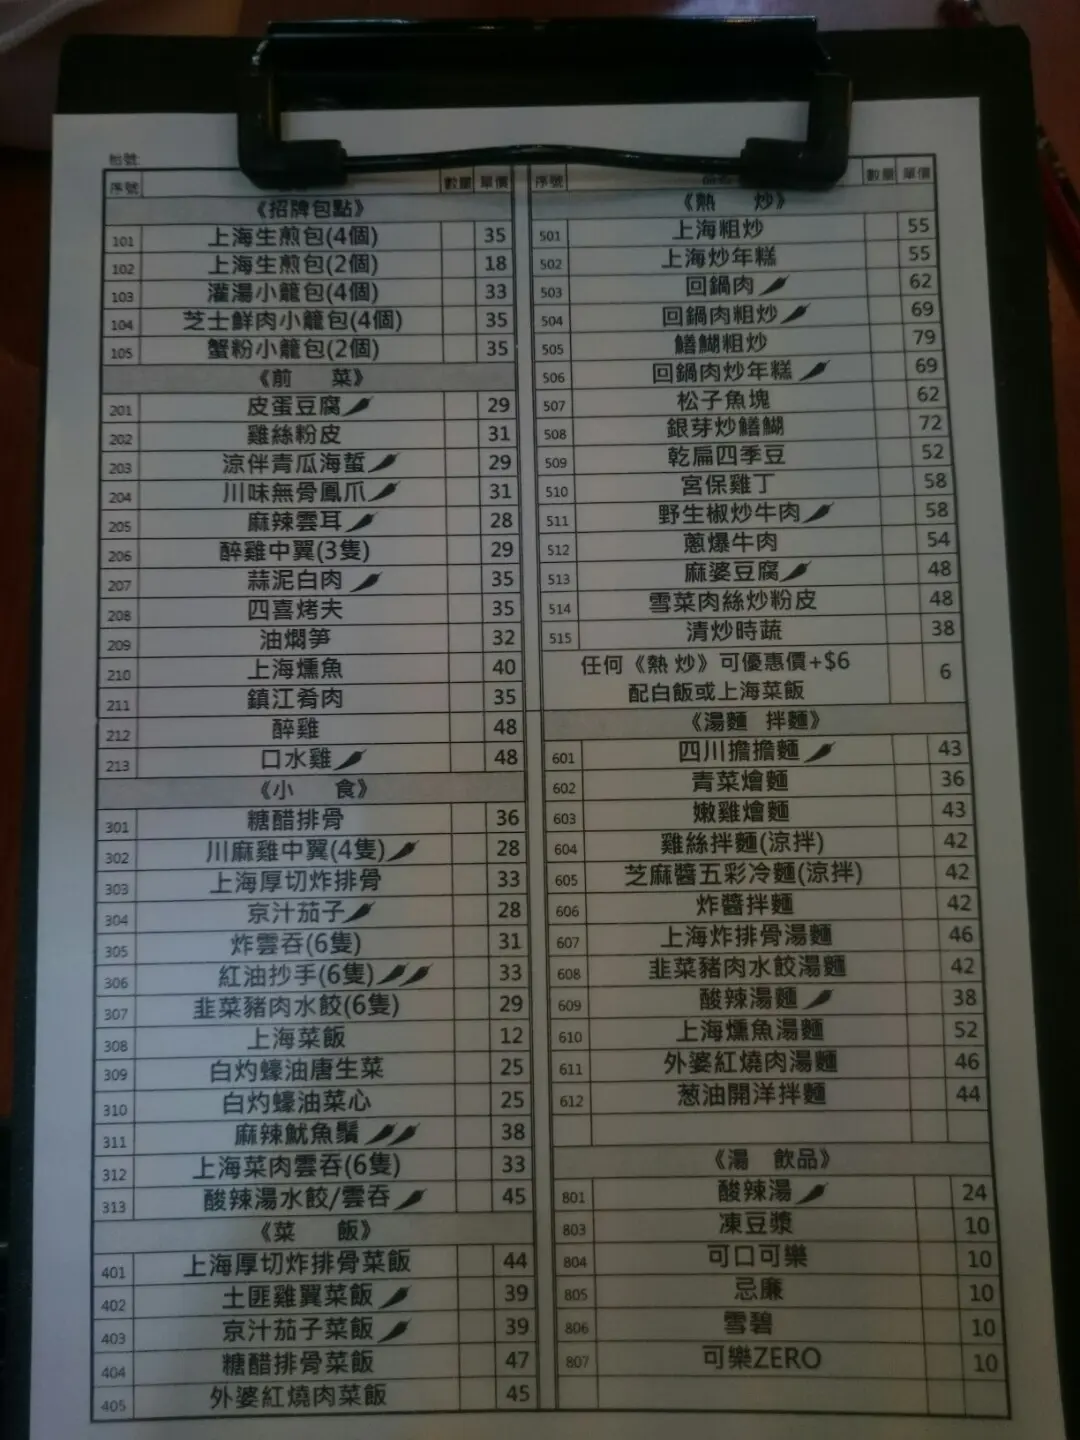 枱號:
序號 數量 單價
《招牌包點》
101 上海生煎包(4個) 35
102 上海生煎包(2個) 18
103 灌湯小籠包(4個) 33
104 芝士鮮肉小籠包(4個) 35
105 蟹粉小籠包(2個) 35
《前 菜》
201 皮蛋豆腐 29
202 雞絲粉皮 31
203 涼伴青瓜海蜇 29
204 川味無骨鳳爪 31
205 麻辣雲耳 28
206 醉雞中翼(3隻) 29
207 蒜泥白肉 35
208 四喜烤夫 35
209 油燜笋 32
210 上海燻魚 40
211 鎮江肴肉 35
212 醉雞 48
213 口水雞 48
《小 食》
301 糖醋排骨 36
302 川麻雞中翼(4隻) 28
303 上海厚切炸排骨 33
304 京汁茄子 28
305 炸雲吞(6隻) 31
306 紅油抄手(6隻) 33
307 韭菜豬肉水餃(6隻) 29
308 上海菜飯 12
309 白灼蠔油唐生菜 25
310 白灼蠔油菜心 25
311 麻辣魷魚鬚 38
312 上海菜肉雲吞(6隻) 33
313 酸辣湯水餃/雲吞 45
《菜 飯》
401 上海厚切炸排骨菜飯 44
402 土匪雞翼菜飯 39
403 京汁茄子菜飯 39
404 糖醋排骨菜飯 47
405 外婆紅燒肉菜飯 45
序號 數量 單價
《熱 炒》
501 上海粗炒 55
502 上海炒年糕 55
503 回鍋肉 62
504 回鍋肉粗炒 69
505 鱔鰗粗炒 79
506 回鍋肉炒年糕 69
507 松子魚塊 62
508 銀芽炒鱔鰗 72
509 乾扁四季豆 52
510 宮保雞丁 58
511 野生椒炒牛肉 58
512 蔥爆牛肉 54
513 麻婆豆腐 48
514 雪菜肉絲炒粉皮 48
515 清炒時蔬 38
任何《熱 炒》可優惠價+$6 6
配白飯或上海菜飯
《湯麵 拌麵》
601 四川擔擔麵 43
602 青菜燴麵 36
603 嫩雞燴麵 43
604 雞絲拌麵(涼拌) 42
605 芝麻醬五彩冷麵(涼拌) 42
606 炸醬拌麵 42
607 上海炸排骨湯麵 46
608 韭菜豬肉水餃湯麵 42
609 酸辣湯麵 38
610 上海燻魚湯麵 52
611 外婆紅燒肉湯麵 46
612 葱油開洋拌麵 44
《湯 飲品》
801 酸辣湯 24
803 凍豆漿 10
804 可口可樂 10
805 忌廉 10
806 雪碧 10
807 可樂ZERO 10